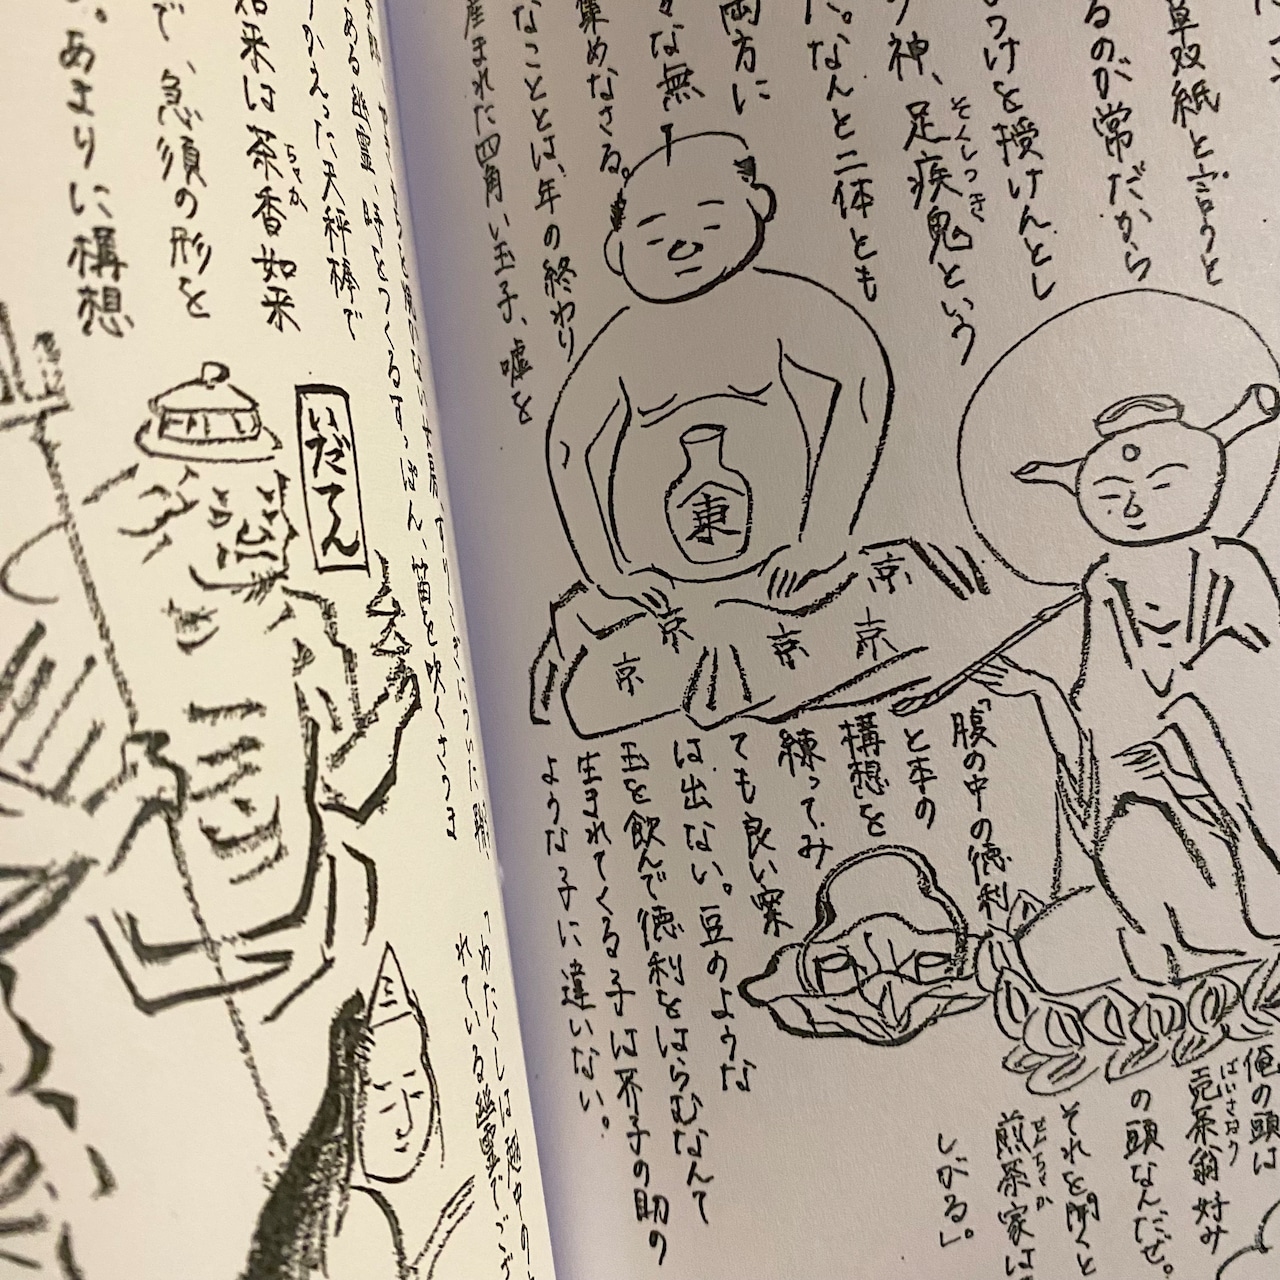 草双紙と言うと
るのが常だから
つけを授けんとし
そくしつき
神、足疾鬼という
た。なんと二体とも
両方に
々な無
集めなさる。
なこととは、年の終わり
産まれた四角い玉子、嘘を
東
京
京
京
京
京
「腹の中の徳利
と本の
構想を
練ってみ
ても良い案
は出ない。豆のような
玉を飲んで徳利をはらむなんて
生まれてくる子は芥子の助の
ような子に違いない。
俺の頭は
ばいさおう
売茶翁好み
の頭なんだぜ。
それを聞くと
せんちゃか
煎茶家は
しがる。」
ある幽霊、時をつくるすっぽん、笛を吹くさつま
かえった天秤棒で
ちゃか
如来は茶香如来
で、急須の形を
。あまりに構想
いだてん
三
「わたくしは越中の
れている幽霊でござ